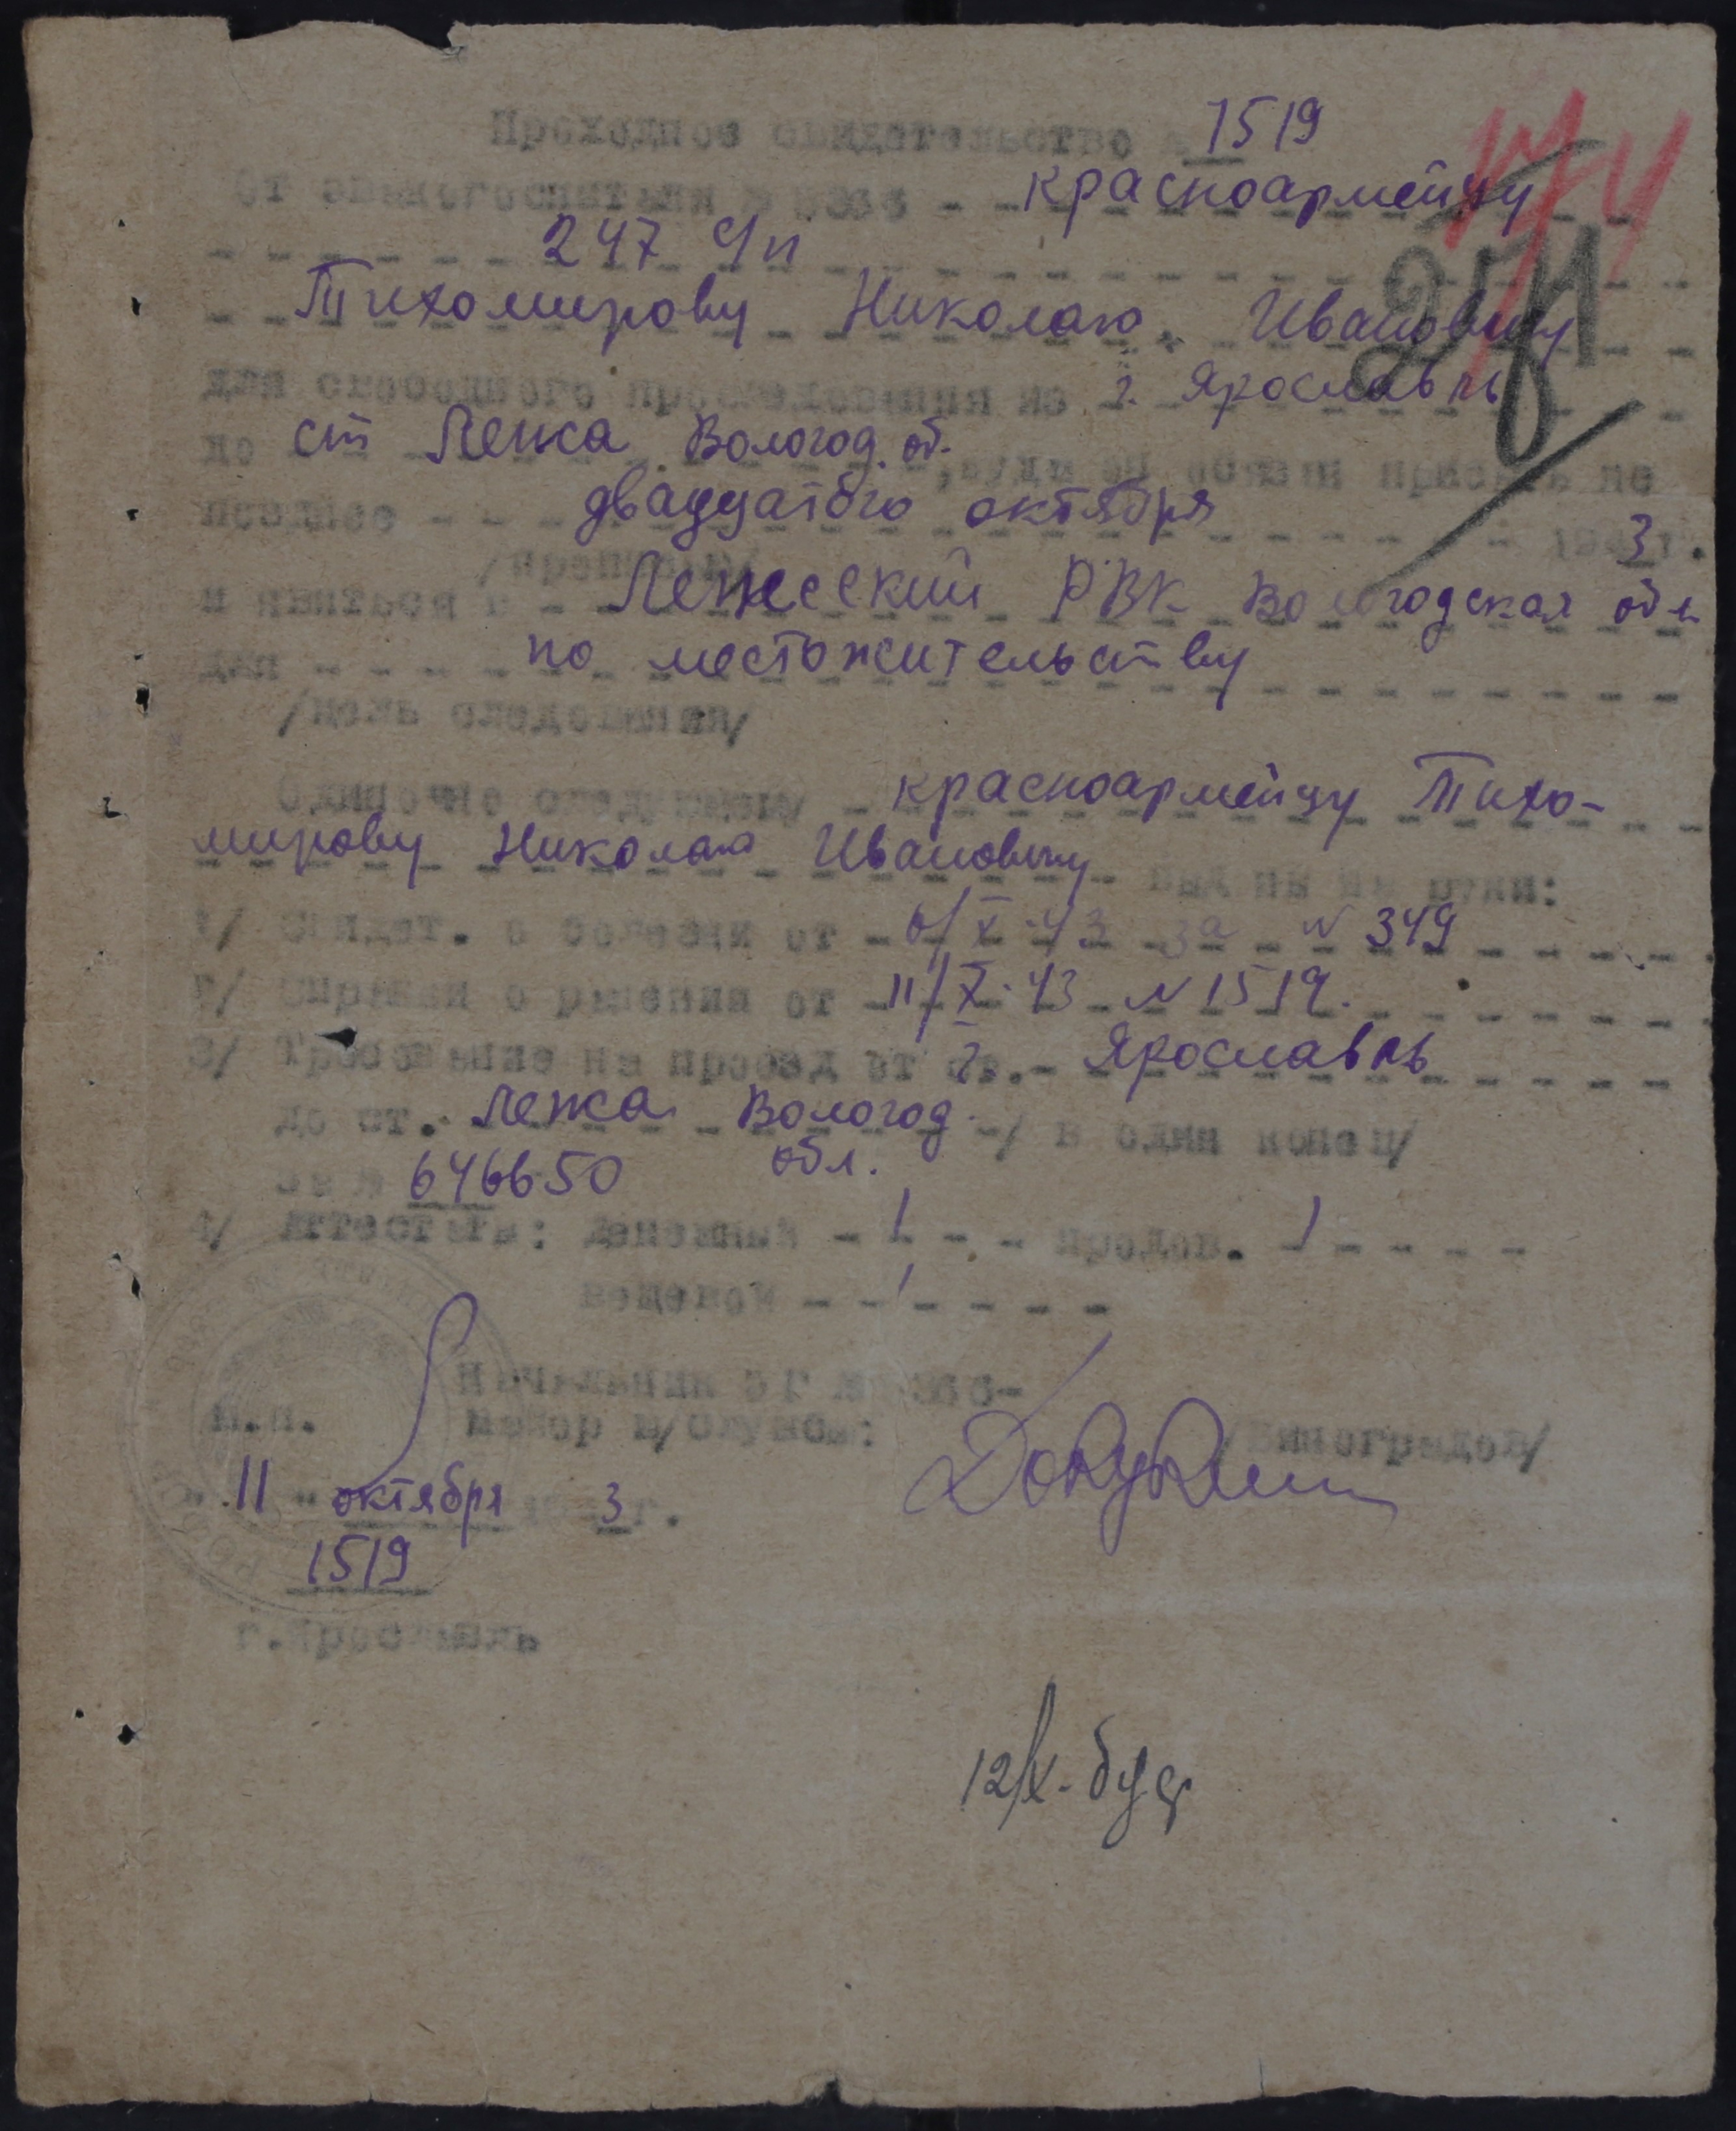 Проходное свидетельство 1519
От эвакогоспиталя - - красноармейцу
247 с/п
Тихомирову Николаю Ивановичу
для свободного проследования из г. Ярославль
до ст Лежа Вологод. об.
позднее - - двадцатого октября - - 1943 г.
/прописью/
и явиться в - Лежский РВК Вологодская обл
для - - по местожительству
/цель следования/
Одиночно следующему - красноармейцу Тихо-
мирову Николаю Ивановичу - выданы на руки:
1/ Свидет. о болезни от - 6/X-43 за N 349
2/ Справки о ранении от - 11/X-43 N 1519.
3/ Требование на проезд от ст. г. Ярославль
до ст. Лежа Вологод. -/ в один конец/
за № 646650 обл.
4/ Аттестаты: денежный - 1 - - продов. - 1 - - - -
вещевой - - 1 - - - -
Начальник ЭГ
майор м/службы: /Виноградов/
м.п.
11 октября 1943 г.
1519
г. Ярославль
12/X-